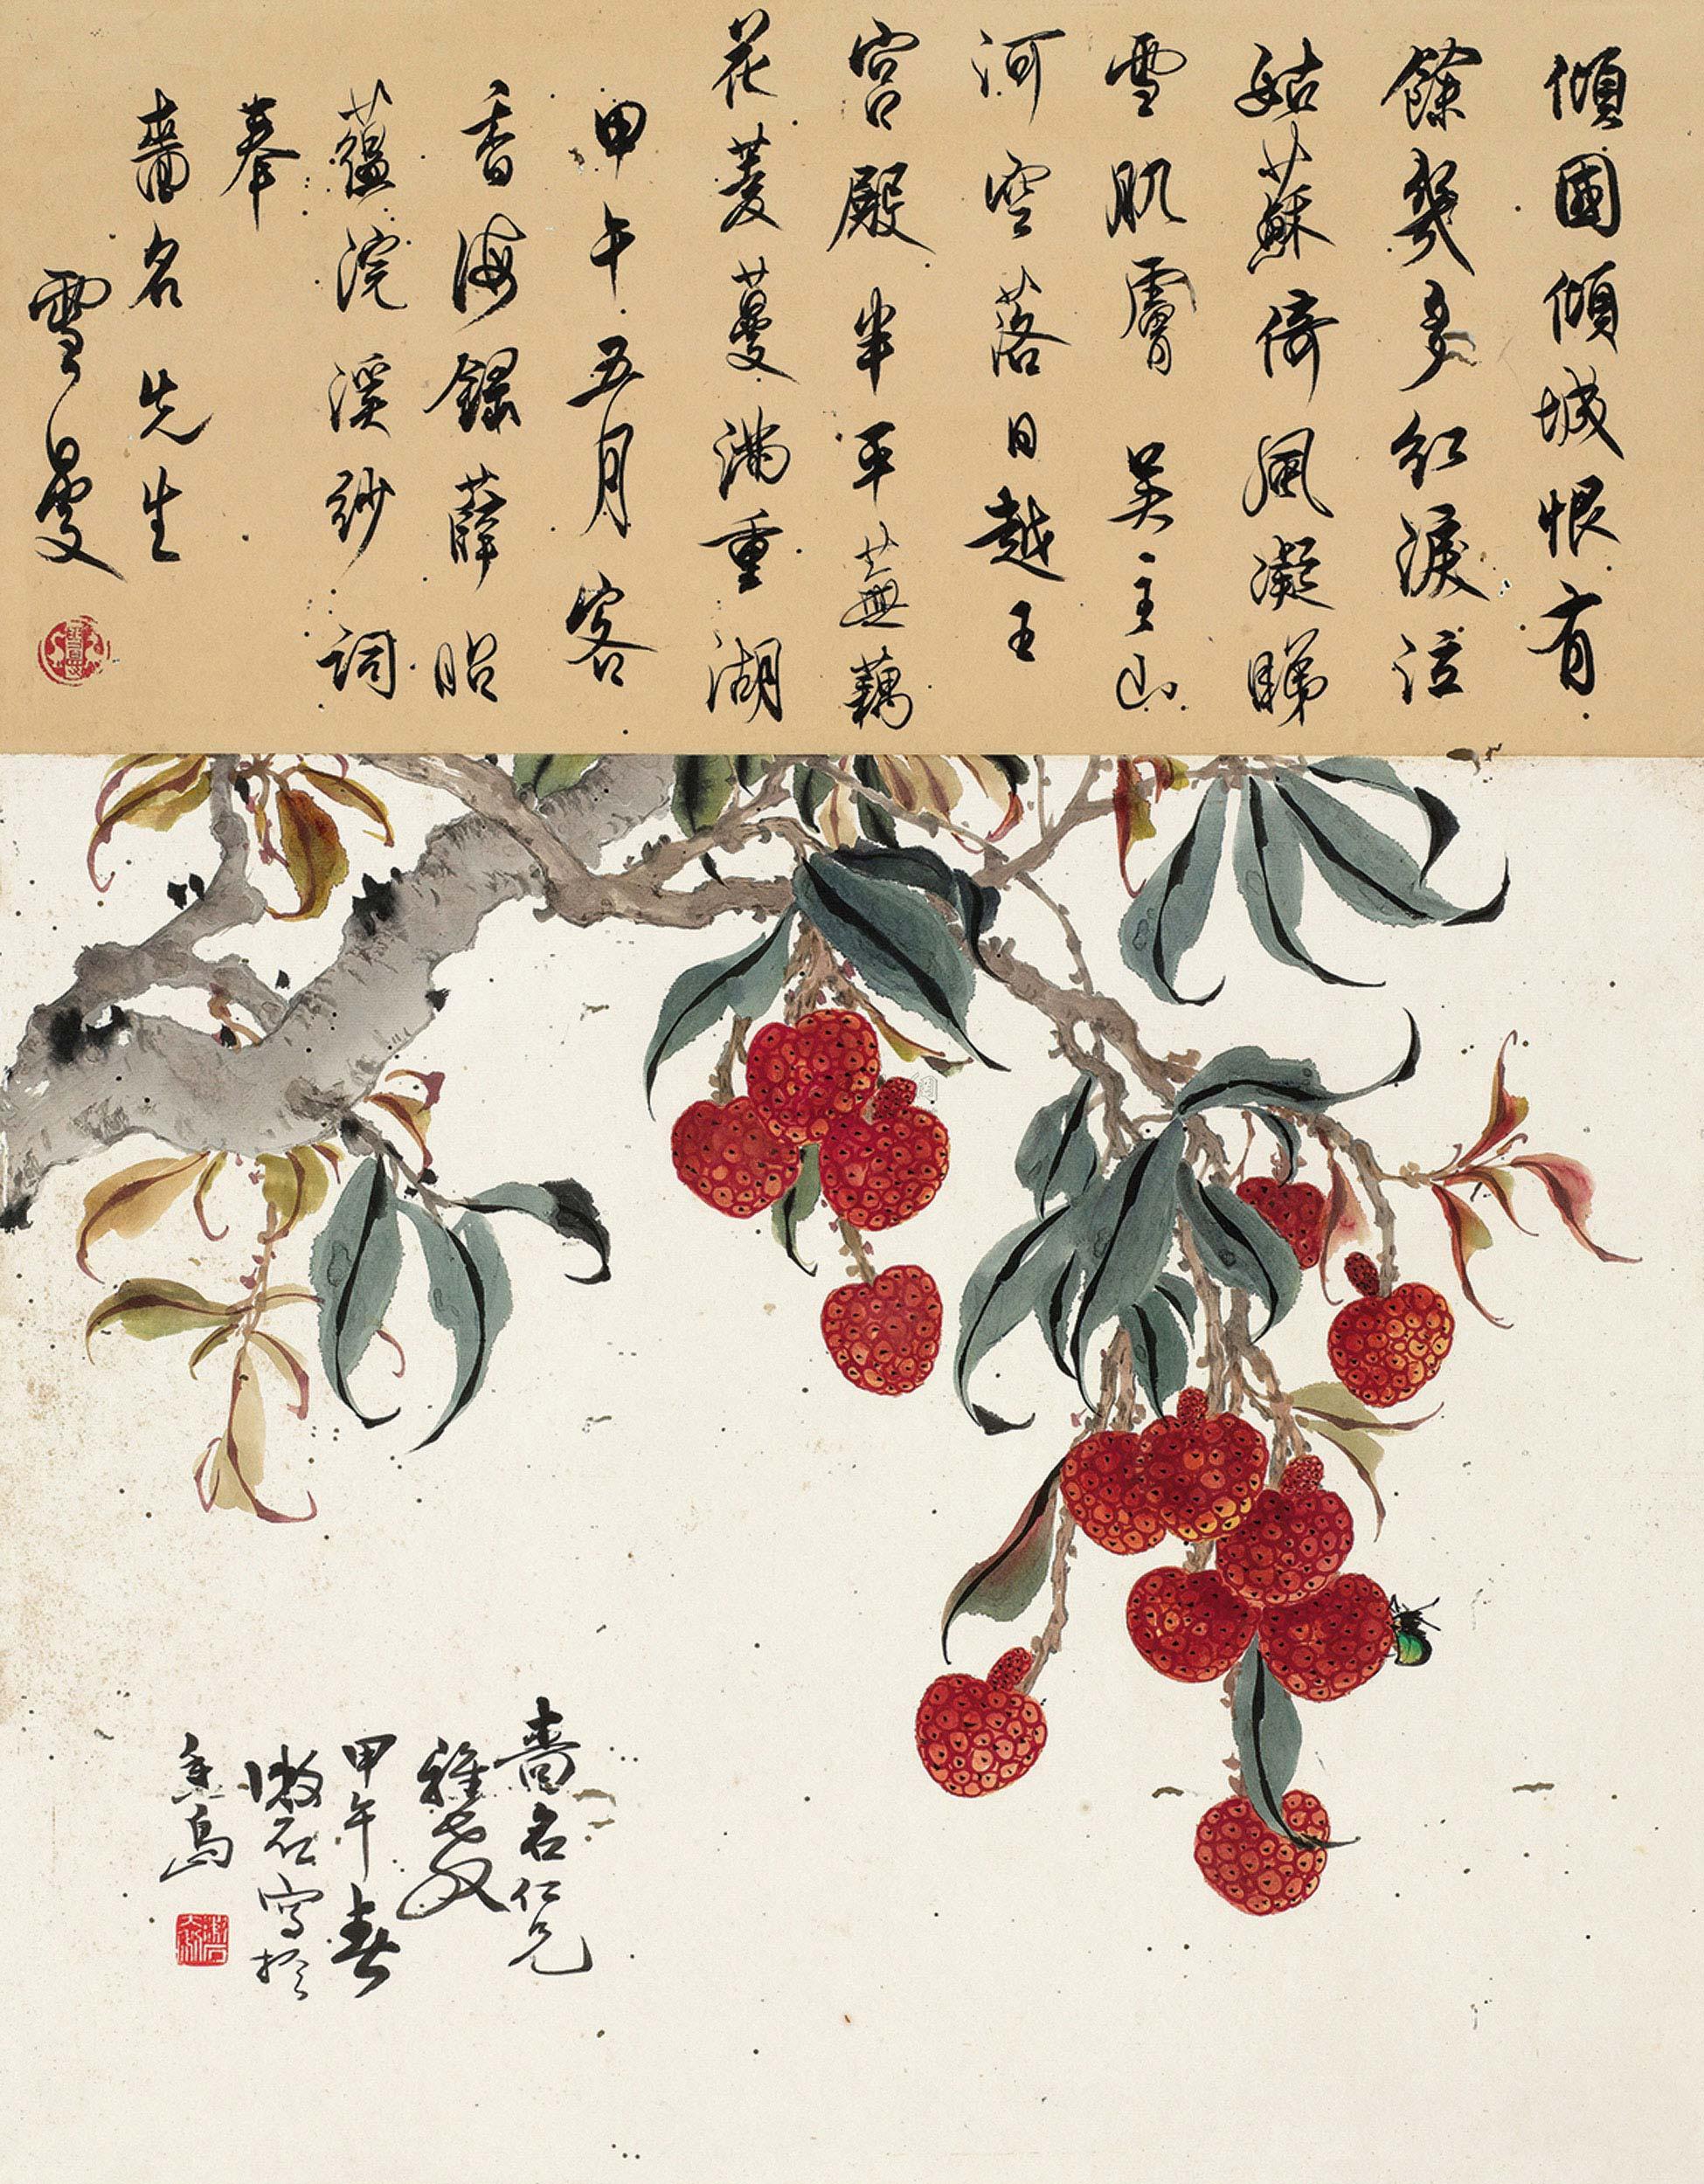 傾國傾城恨有
餘幾多紅淚泣
姑蘇倚風凝睇
雪肌膚 吳主山
河空落日越王
宮殿半平蕪藕
花菱蔓滿重湖
甲午五月客
香海錄薛昭
蘊浣溪紗詞
奉
嗇名先生
雪曼
嗇名仁兄
雅教
甲午春
漱石寫於
香島